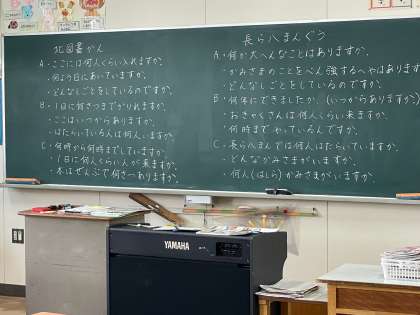 北図書かん
A・ここには何人くらい入れますか。
・何よう日にあいていますか。
・どんなしごとをしているのですか。
B・1日に何さつまでかりれますか。
・ここはいつからありますか。
・はたらいている人は何人いますか。
C・何時から何時までしていますか。
・1日に何人くらい人が来ますか。
・本はぜんぶで何さつありますか。
長ら八まんぐう
A・何か大へんなことはありますか。
・かみさまのことをべん強するへやはあります
・どんなしごとをしているのですか。
B・何年にできましたか。(いつからありますか)
・おきゃくさんは何人くらい来ますか。
・何時までやっているんですか。
C・長ら八まんでは何人はたらいていますか。
・どんなかみさまがいますか。
・何人(はしら)かみさまがいますか。
YAMAHA